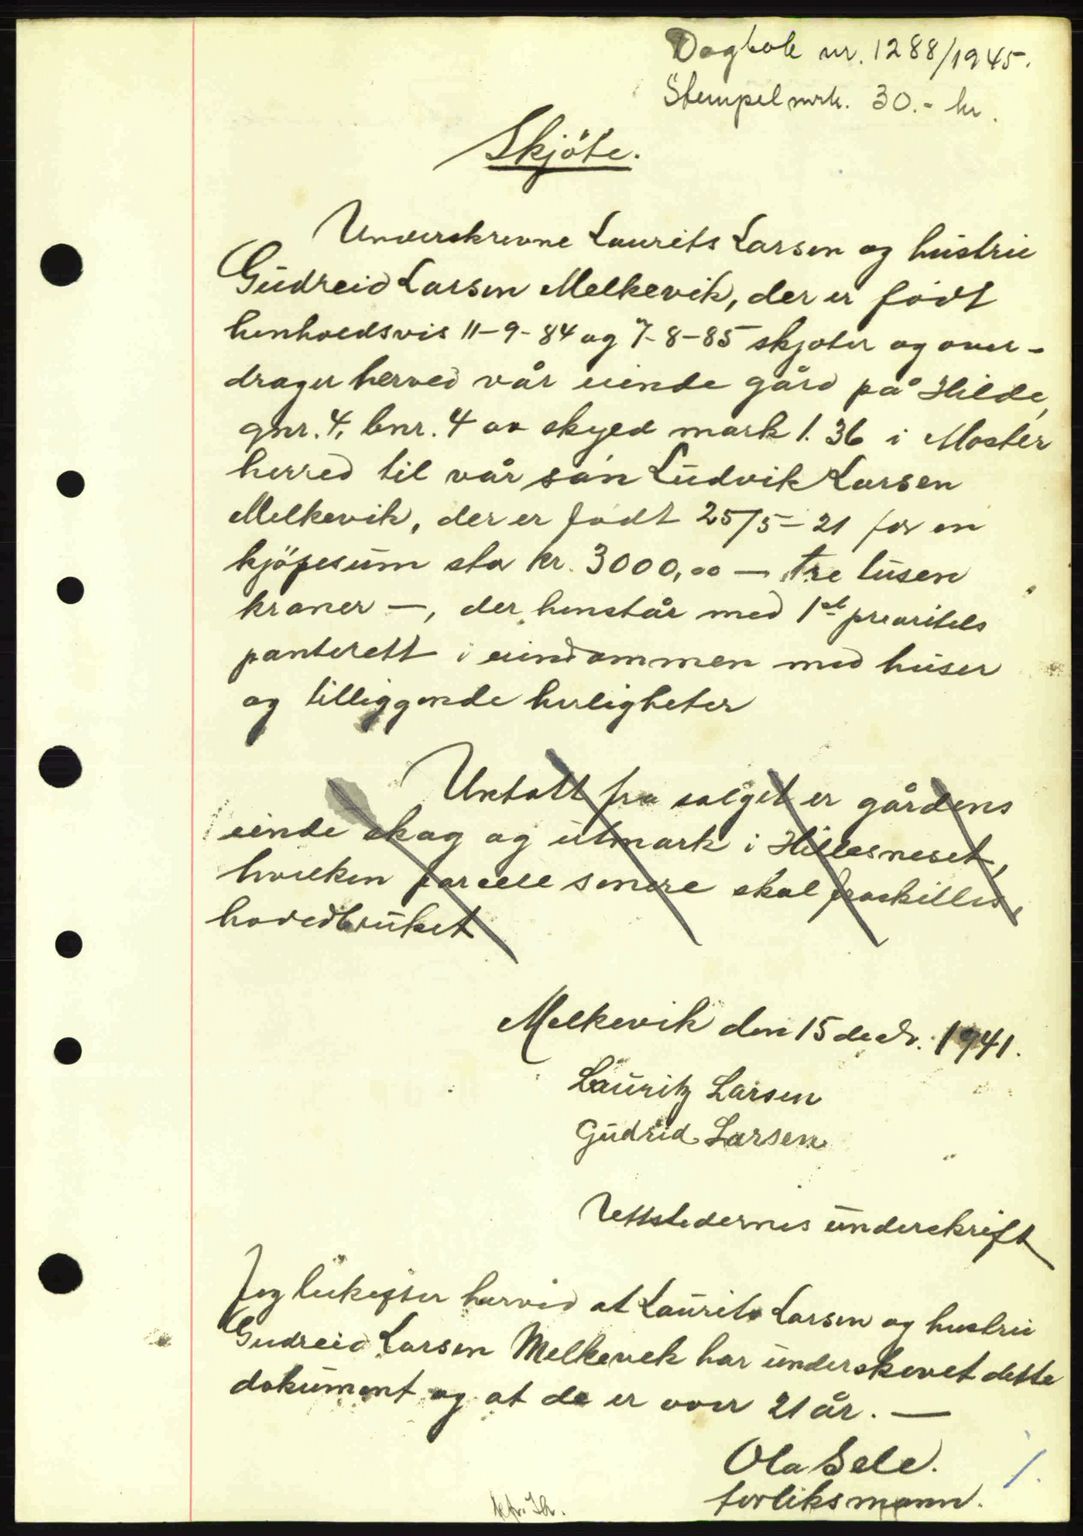 Dagbok nr. 1288/1945.
Stempelmrk. 30.- kr.
Skjöte.
Underskrevne Laurits Larsen og hustru
Gudreid Larsen Melkevik, der er födt
henholdsvis 11-9-84 og 7-8-85 skjøter og over-
drager herved vår eiende gård på Hilde,
gnr. 4, bnr. 4 av skyld mark 1.36 i Moster
herred til vår sön Ludvik Larsen
Melkevik, der er födt 25/5-21 for en
kjöpesum stor kr. 3000,00 — tre tusen
kroner —, der henstår med 1st prioritets
panterett i eiendommen med huser
og tilliggende herligheter
Untatt fra salget er gårdens
eiende skog og utmark i Hillesneset,
hvilken parcell senere skal fraskilles,
hovedbruket
Melkevik den 15 decbr. 1941.
Lauritz Larsen
Gudrid Larsen
Vettstedernes underskrift
Jeg bekefter herved at Laurits Larsen og hustru
Gudreid Larsen Melkevek har underskevet dette
dokument og at de er over 21 år. —
Ola Sele.
forliksmann.